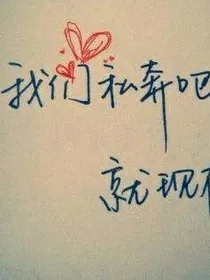 我们私奔吧
就现